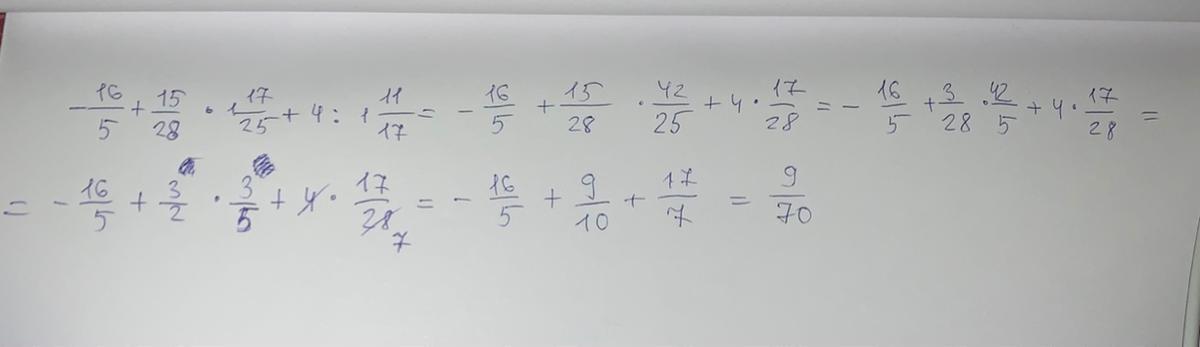 -16/5 + 15/28 · 1 17/25 + 4 : 1 11/17 = - 16/5 + 15/28 · 42/25 + 4 · 17/28 = - 16/5 + 3/28 · 42/5 + 4 · 17/28 =
= - 16/5 + 3/2 · 3/5 + 4 · 17/28 7 = - 16/5 + 9/10 + 17/7 = 9/70